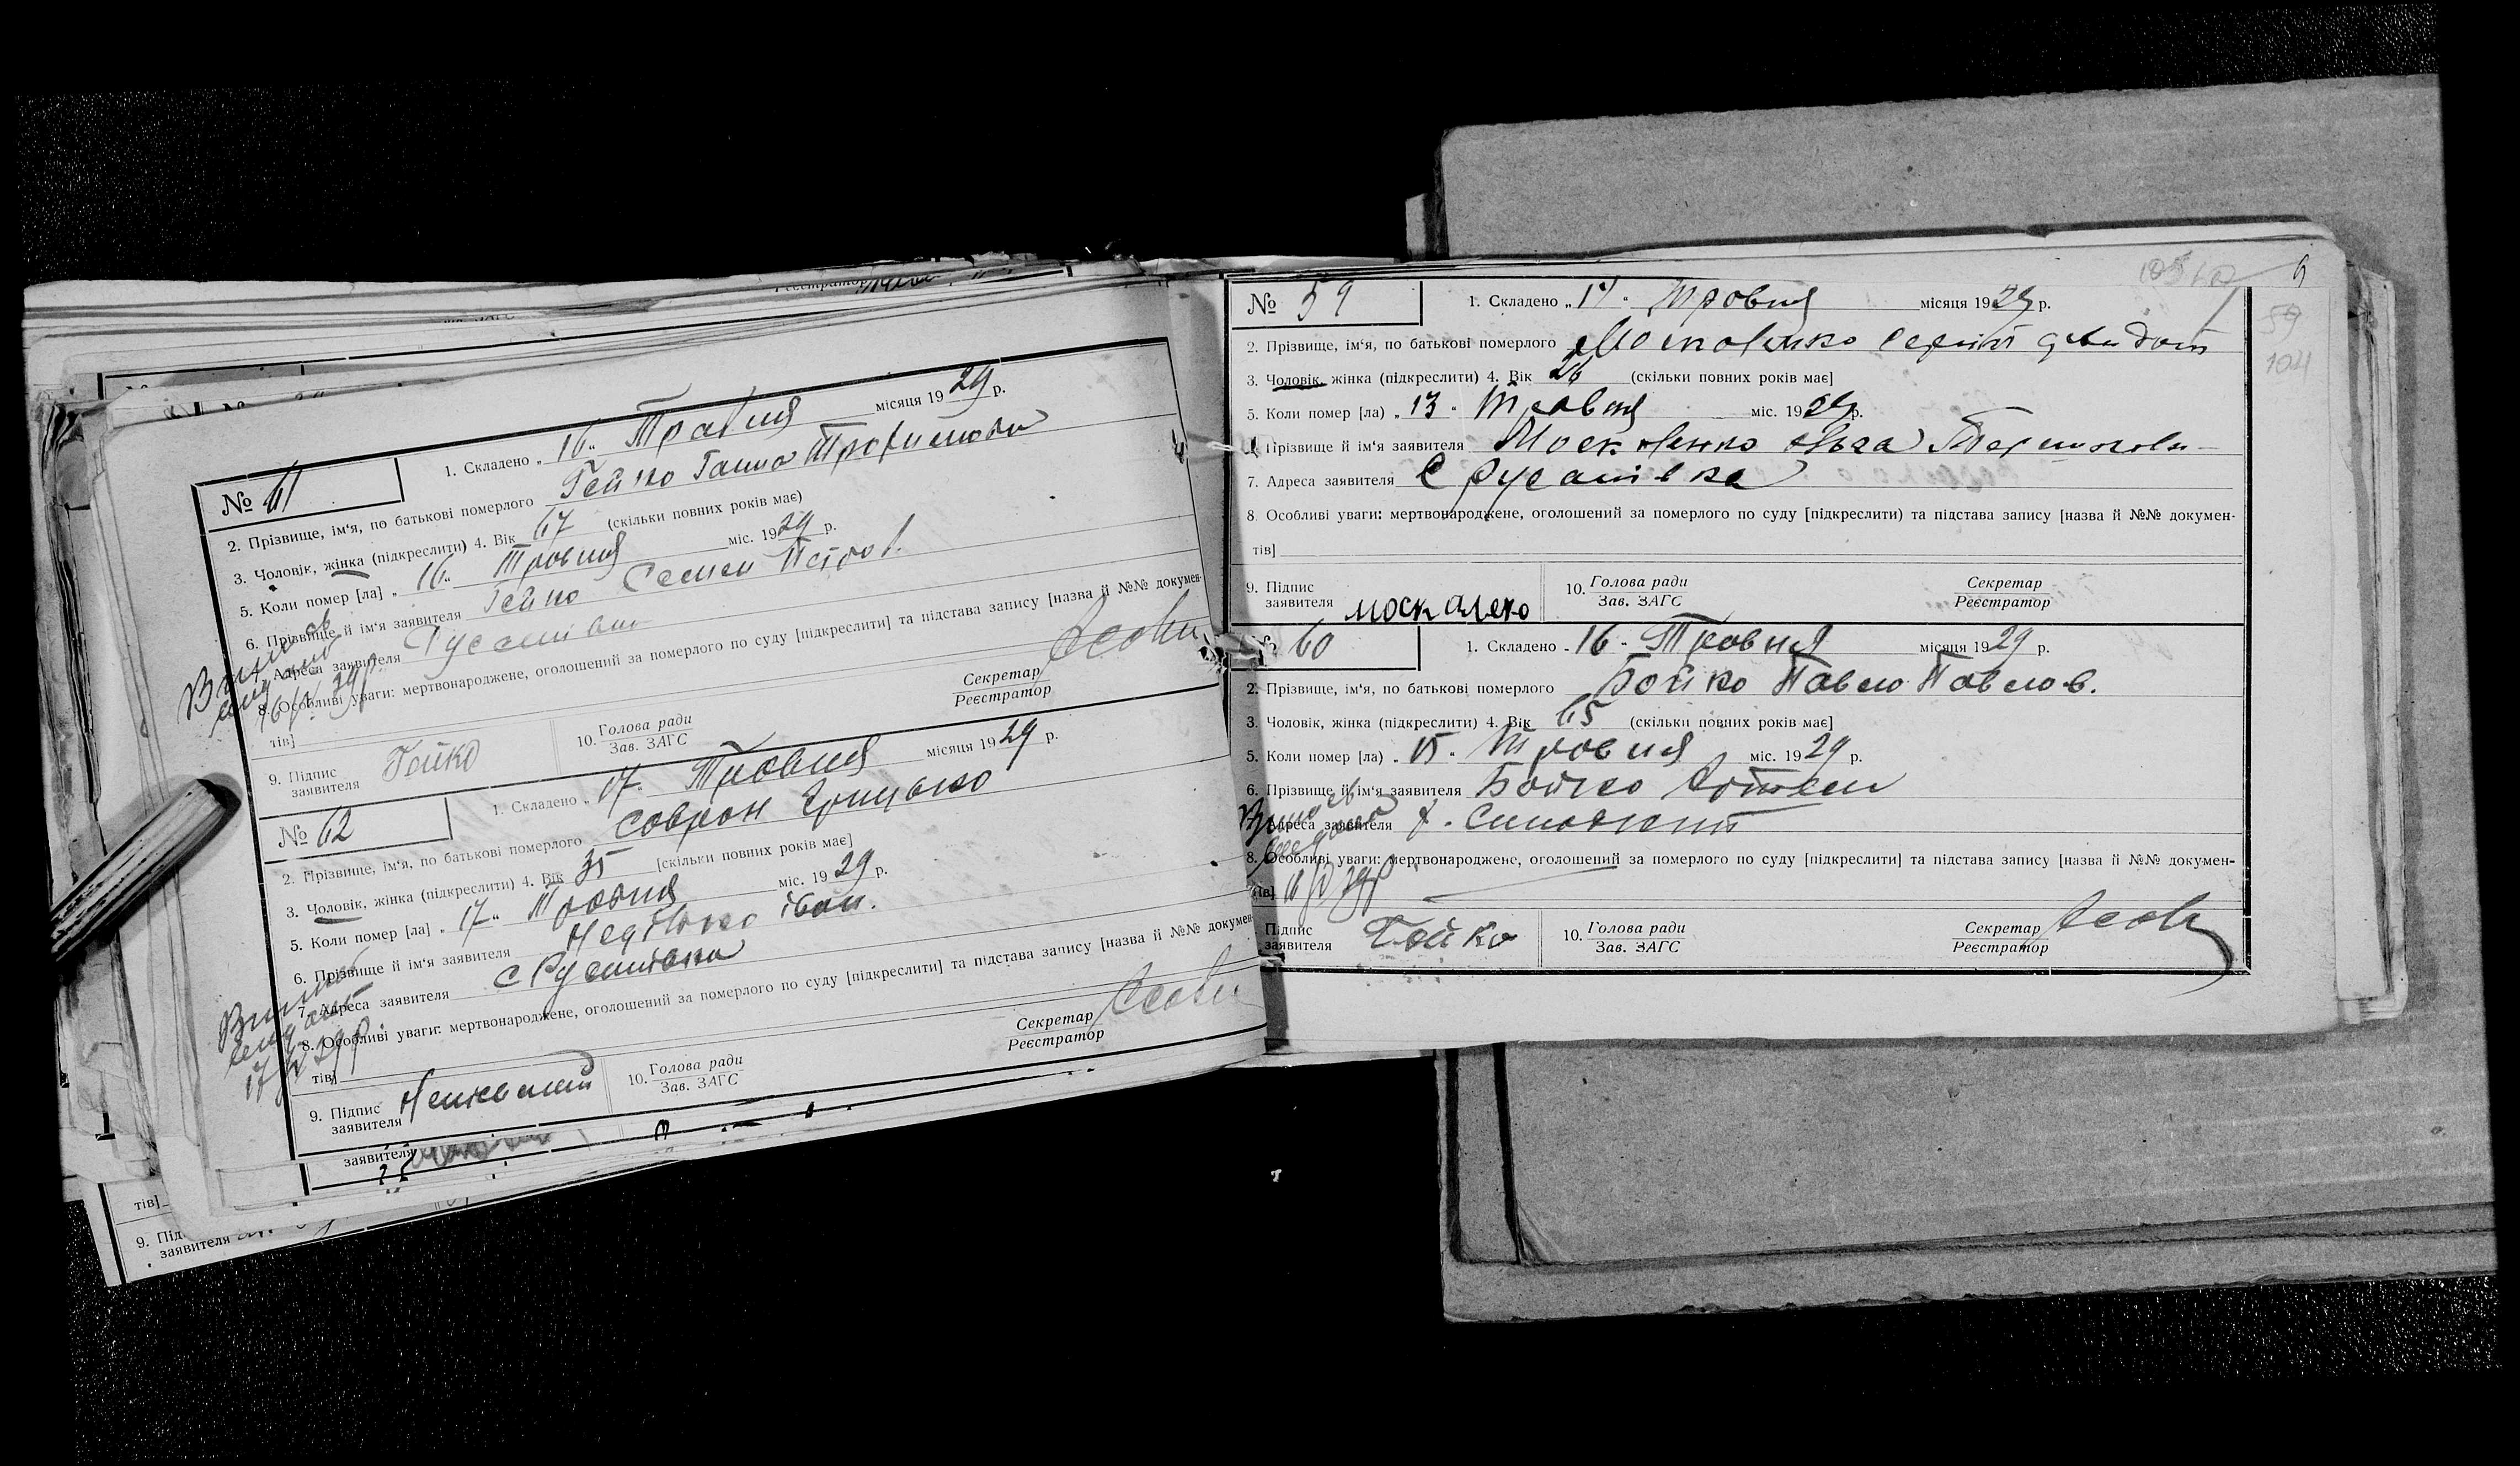 № 61
1. Складено „ 16 " Травня місяця 1929 р.
2. Прізвище, ім'я, по батькові померлого Гейко Ганна Трофимовн
3. Чоловік, жінка (підкреслити) 4. Вік 67 (скільки повних років має)
5. Коли помер [ла] „ 16 " Травня міс. 1929 р.
6. Прізвище й ім'я заявителя Гейко Семен Петров.
Адреса заявителя Русанівк
8. Особливі уваги: мертвонароджене, оголошений за померлого по суду [підкреслити] та підстава запису [назва й №№ докумен-
тів]
9. Підпис заявителя Гейко 10. Голова ради Зав. ЗАГС Секретар Реєстратор
№ 62
1. Складено „ 17 " Травня місяця 1929 р.
2. Прізвище, ім'я, по батькові померлого Соврон Грицько
3. Чоловік, жінка (підкреслити) 4. Вік 35 [скільки повних років має]
5. Коли помер [ла] „ 17 " Травня міс. 1929 р.
6. Прізвище й ім'я заявителя Іван.
7. Адреса заявителя с Русанівка
8. Особливі уваги: мертвонароджене, оголошений за померлого по суду [підкреслити] та підстава запису [назва й №№ докумен-
тів]
9. Підпис заявителя 10. Голова ради Зав. ЗАГС Секретар Реєстратор
заявителя
тів]
9. Під
заявителя
59
104
№ 59
1. Складено „ 14 " Травня місяця 1929 р.
2. Прізвище, ім'я, по батькові померлого Москаленко Сергій Давидов
3. Чоловік, жінка (підкреслити) 4. Вік 26 (скільки повних років має]
5. Коли помер [ла) „ 13 " Травня міс. 1929 р.
Прізвище й ім'я заявителя Москаленко
7. Адреса заявителя С Русанівка
8. Особливі уваги: мертвонароджене, оголошений за померлого по суду [підкреслити) та підстава запису [назва й №№ докумен-
тів]
9. Підпис заявителя москалеко 10. Голова ради Зав. ЗАГС Секретар Реєстратор
№ 60
1. Складено „ 16 " Травня місяця 1929 р.
2. Прізвище, ім'я, по батькові померлого Бойко Павло Павлов.
3. Чоловік, жінка (підкреслити) 4. Вік 65 (скільки повних років має]
5. Коли помер [ла) „ 15 " Травня міс. 1929 р.
6. Прізвище й ім'я заявителя Бойко
Адреса заявителя х.
8. Особливі уваги: мертвонароджене, оголошений за померлого по суду [підкреслити] та підстава запису [назва й №№ докумен-
тів]
Підпис заявителя Бойко 10. Голова ради Зав. ЗАГС Секретар Реєстратор